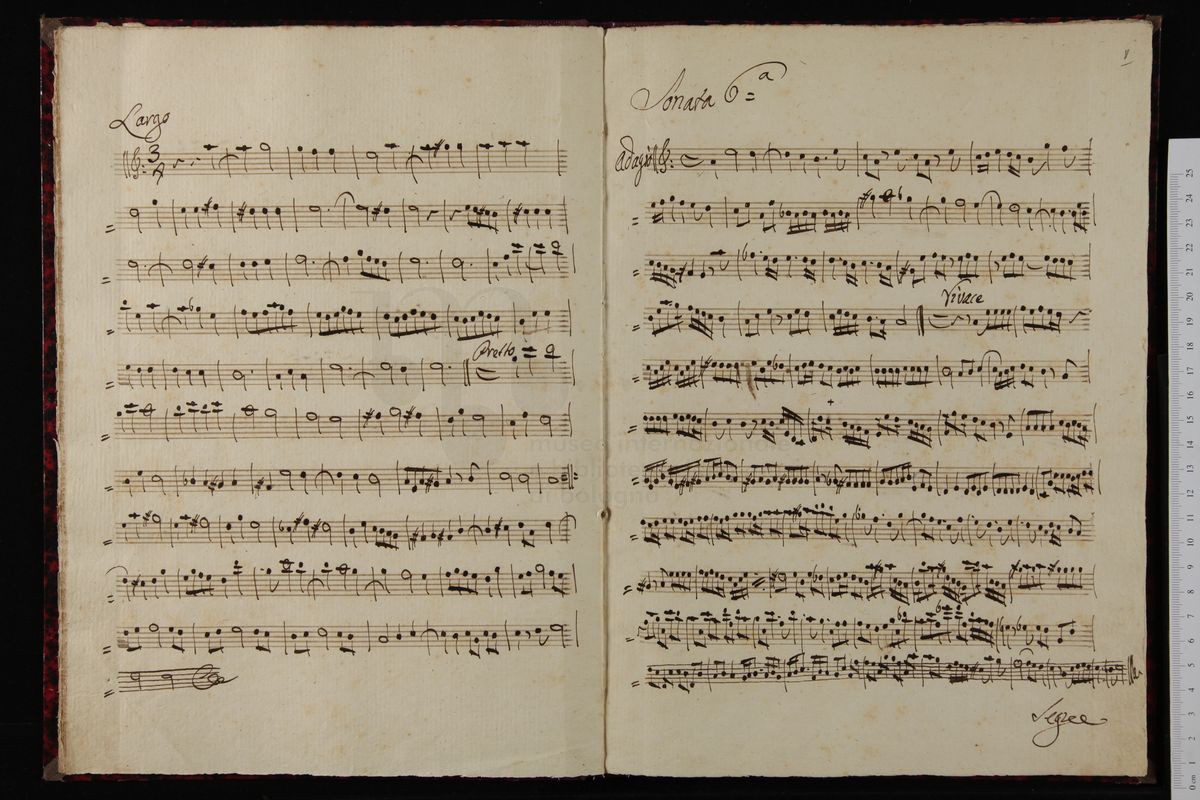 Largo
3
4
Presto
8
Sonata 6.a
Adagio
Vivace
Segue
museo internazionale
biblioteca
di bologna
25
24
23
22
21
20
19
18
17
16
15
14
13
12
11
10
9
8
7
6
5
4
3
2
1
0 cm